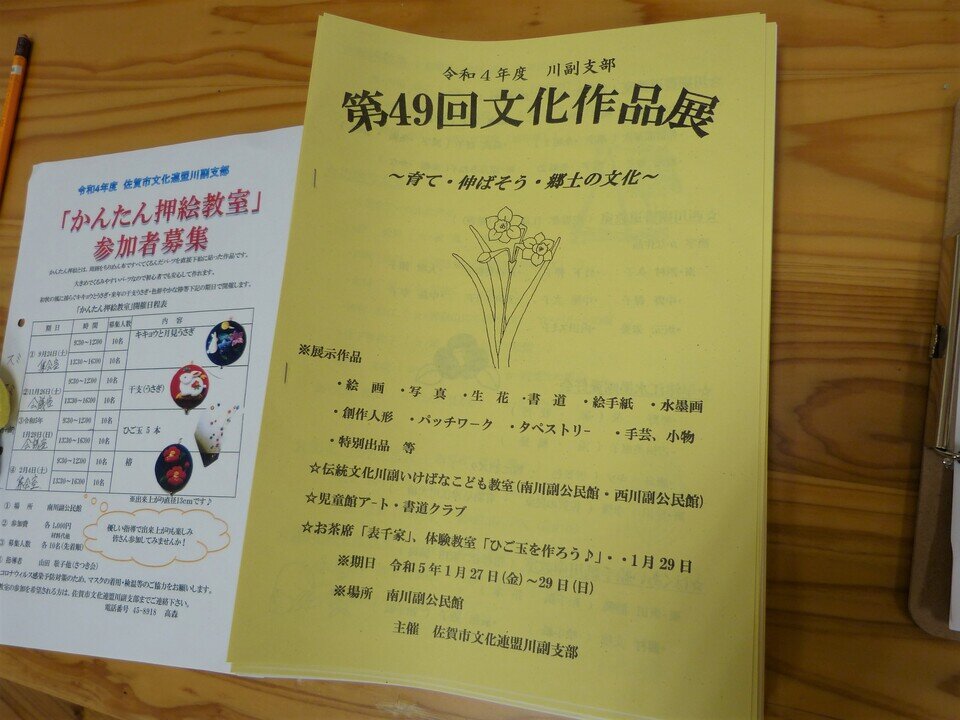 令和4年度 佐賀市文化連盟川副支部
「かんたん押絵教室」
参加者募集
「かんたん押絵教室」開催日程表
期 日 時 間 募集人数 内 容
① 9月24日(土) 9:30~12:00 10名 キキョウと月見うさぎ
集会室 13:30~16:00 10名
②11月26日(土) 9:30~12:00 10名 干支(うさぎ)
会議室 13:30~16:00 10名
③令和5年 9:30~12:00 10名 ひご玉 5本
1月29日(日) 13:30~16:00 10名
会議室
④ 2月4日(土) 9:30~12:00 10名 椿
集会室 13:30~16:00 10名
※出来上がり直径15cmです♪
① 場 所 南川副公民館
② 参加費 各 1,000円
材料代他
③ 募集人数 各 10名(先着順)
優しい指導で出来上がりも楽しみ
皆さん参加してみませんか!
指導者 山田 敬子他(さつき会)
コロナウィルス感染予防対策のため、マスクの着用・検温等のご協力をお願いします。
教室の参加を希望される方は、佐賀市文化連盟川副支部までご連絡下さい。
電話番号 45-8918 高森
令和4年度 川副支部
第49回文化作品展
~育て・伸ばそう・郷土の文化~
※展示作品
・絵 画 ・写 真 ・生 花 ・書 道 ・絵手紙 ・水墨画
・創作人形 ・パッチワーク ・タペストリー ・手芸、小物
・特別出品 等
☆伝統文化川副いけばなこども教室(南川副公民館・西川副公民館)
☆児童館アート・書道クラブ
☆お茶席「表千家」、体験教室「ひご玉を作ろう♪」・・1月29日
※期日 令和5年1月27日(金)~29日(日)
※場所 南川副公民館
主催 佐賀市文化連盟川副支部